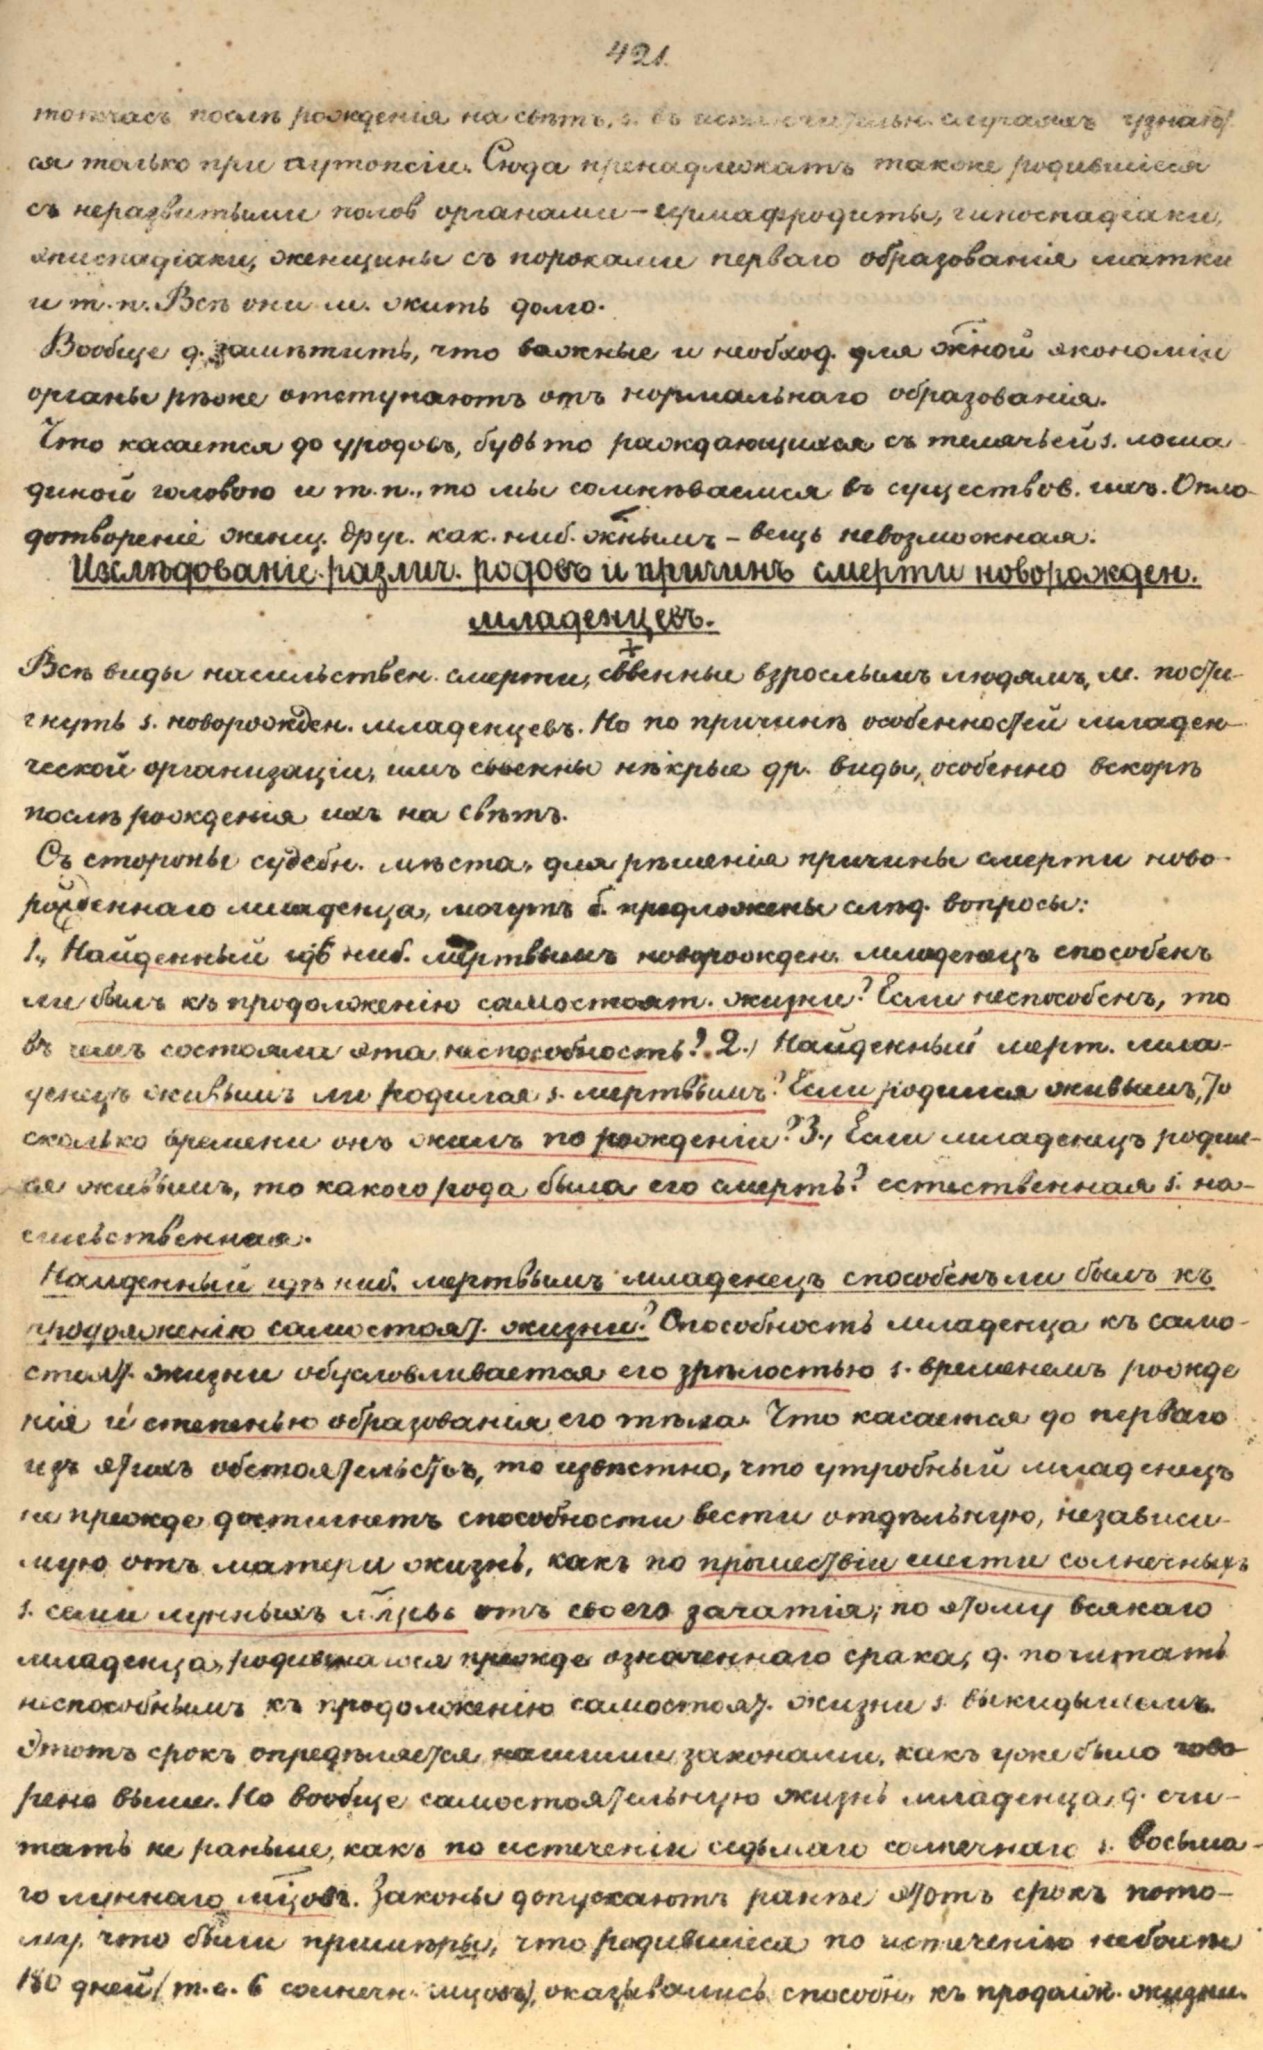 421.
тотчасъ послѣ рожденія на свѣтъ, s. въ исключительн. случаяхъ узнают
ся только при аутопсіи. Сюда пренадлежатъ также родившіеся
съ неразвитыми полов органами – гермафродиты, гипоспадіаки,
эписпадіаки, женщины съ пороками перваго образованія матки
и т. п. Всѣ они м. жить долго.
Вообще д. замѣтить, что важные и необход. для жной экономіи
органы рѣже отступаютъ отъ нормальнаго образованія.
Что касается до уродовъ, будьто раждающихся съ телячьей s. лоша
диной головою и т. п., то мы сомнѣваемся въ существов. ихъ. Опло-
дотвореніе женщ. друг. как. ниб. жнымъ – вещь невозможная.
Изслѣдованіе различ. родовъ и причинъ смерти новорожден.
младенцевъ.
Всѣ виды насильствен. смерти, свенные взрослымъ людямъ, м. пости-
гнуть s. новорожден. младенцевъ. Но по причинѣ особенностей младен-
ческой организаціи, имъ свенны нѣкрые др. виды, особенно вскорѣ
послѣ рожденія ихъ на свѣтъ.
Съ стороны судебн. мѣста, для рѣшенія причины смерти ново-
рожденнаго младенца, могутъ б. предложены слѣд. вопросы:
1., Найденный гдѣ ниб. мертвымъ новорожден. младенецъ способенъ
ли былъ къ продолженію самостоят. жизни? Если неспособенъ, то
въ чемъ состояла эта неспособность? 2., Найденный мерт. мла-
денецъ живымъ ли родился s. мертвымъ? Если родился живымъ, то
сколько времени онъ жилъ по рожденіи? 3., Если младенецъ родил-
ся живымъ, то какого рода была его смерть? естественная s. на-
сильственная.
Найденный гдѣ ниб. мертвымъ младенецъ способенъ ли былъ къ
продолженію самостоят. жизни? Способность младенца къ само-
стоят. жизни обусловливается его зрѣлостью s. временемъ рожде
нія и степенью образованія его тѣла. Что касается до перваго
изъ этихъ обстоятельствъ, то извѣстно, что утробный младенецъ
не прежде достигнетъ способности вести отдѣльную, независи-
мую отъ матери жизнь, какъ по прошествіи шести солнечныхъ
s. семи лунныхъ мцевъ отъ своего зачатія; по этому всякаго
младенца, родившагося прежде означеннаго срака, д. почитать
неспособнымъ къ продолженію самостоят. жизни s. выкидышемъ.
Этотъ срокъ опредѣляется нашими законами, какъ уже было гово
рено выше. Но вообще самостоятельную жизнь младенца д. счи-
тать не раньше, какъ по истеченіи седьмаго солнечнаго s. восьма-
го луннаго мцовъ. Законы допускаютъ ранѣе этотъ срокъ пото-
му, что были примѣры, что родившіеся по истеченію неболѣе
180 дней (т. е. 6 солнечн. мцовъ), оказывались способн. къ продолж. жизни.